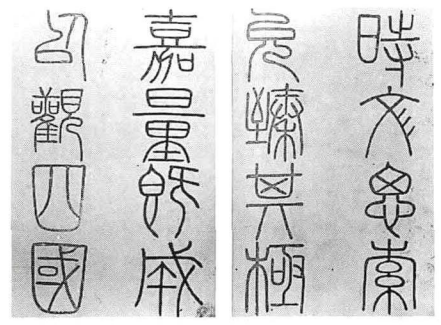 時文思索
允臻其極
嘉量既成
以觀四國